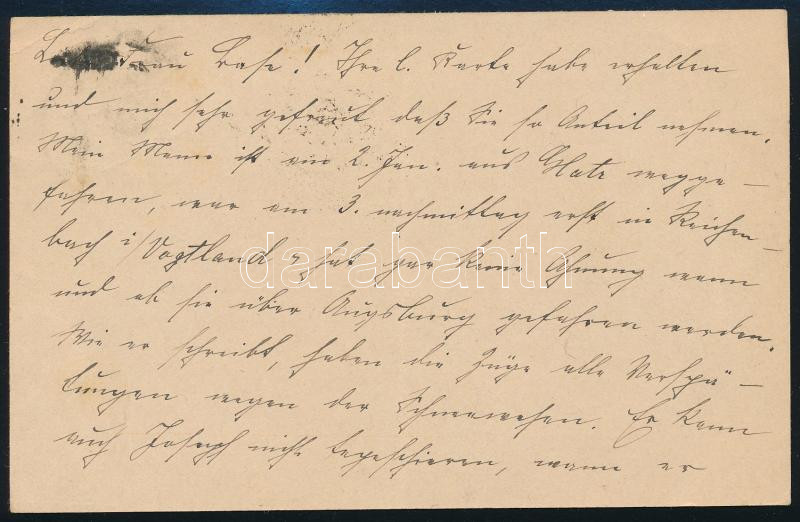 Liebe Frau Base! Ihre l. Karte habe erhalten
und mich sehr gefreut, daß Sie so Anteil nehmen.
Mein Mann ist am 2. Jan. aus Glatz wegge-
fahren, war am 3. nachmittag erst in Reichen-
bach i/Vogtland u. hat gar keine Ahnung wann
und ob sie über Augsburg gefahren werden.
Wie er schreibt, haben die Züge alle Verspä-
tungen wegen der Schneewehen. Er kann
auch Joseph nicht depeschieren, wann er
darabanth